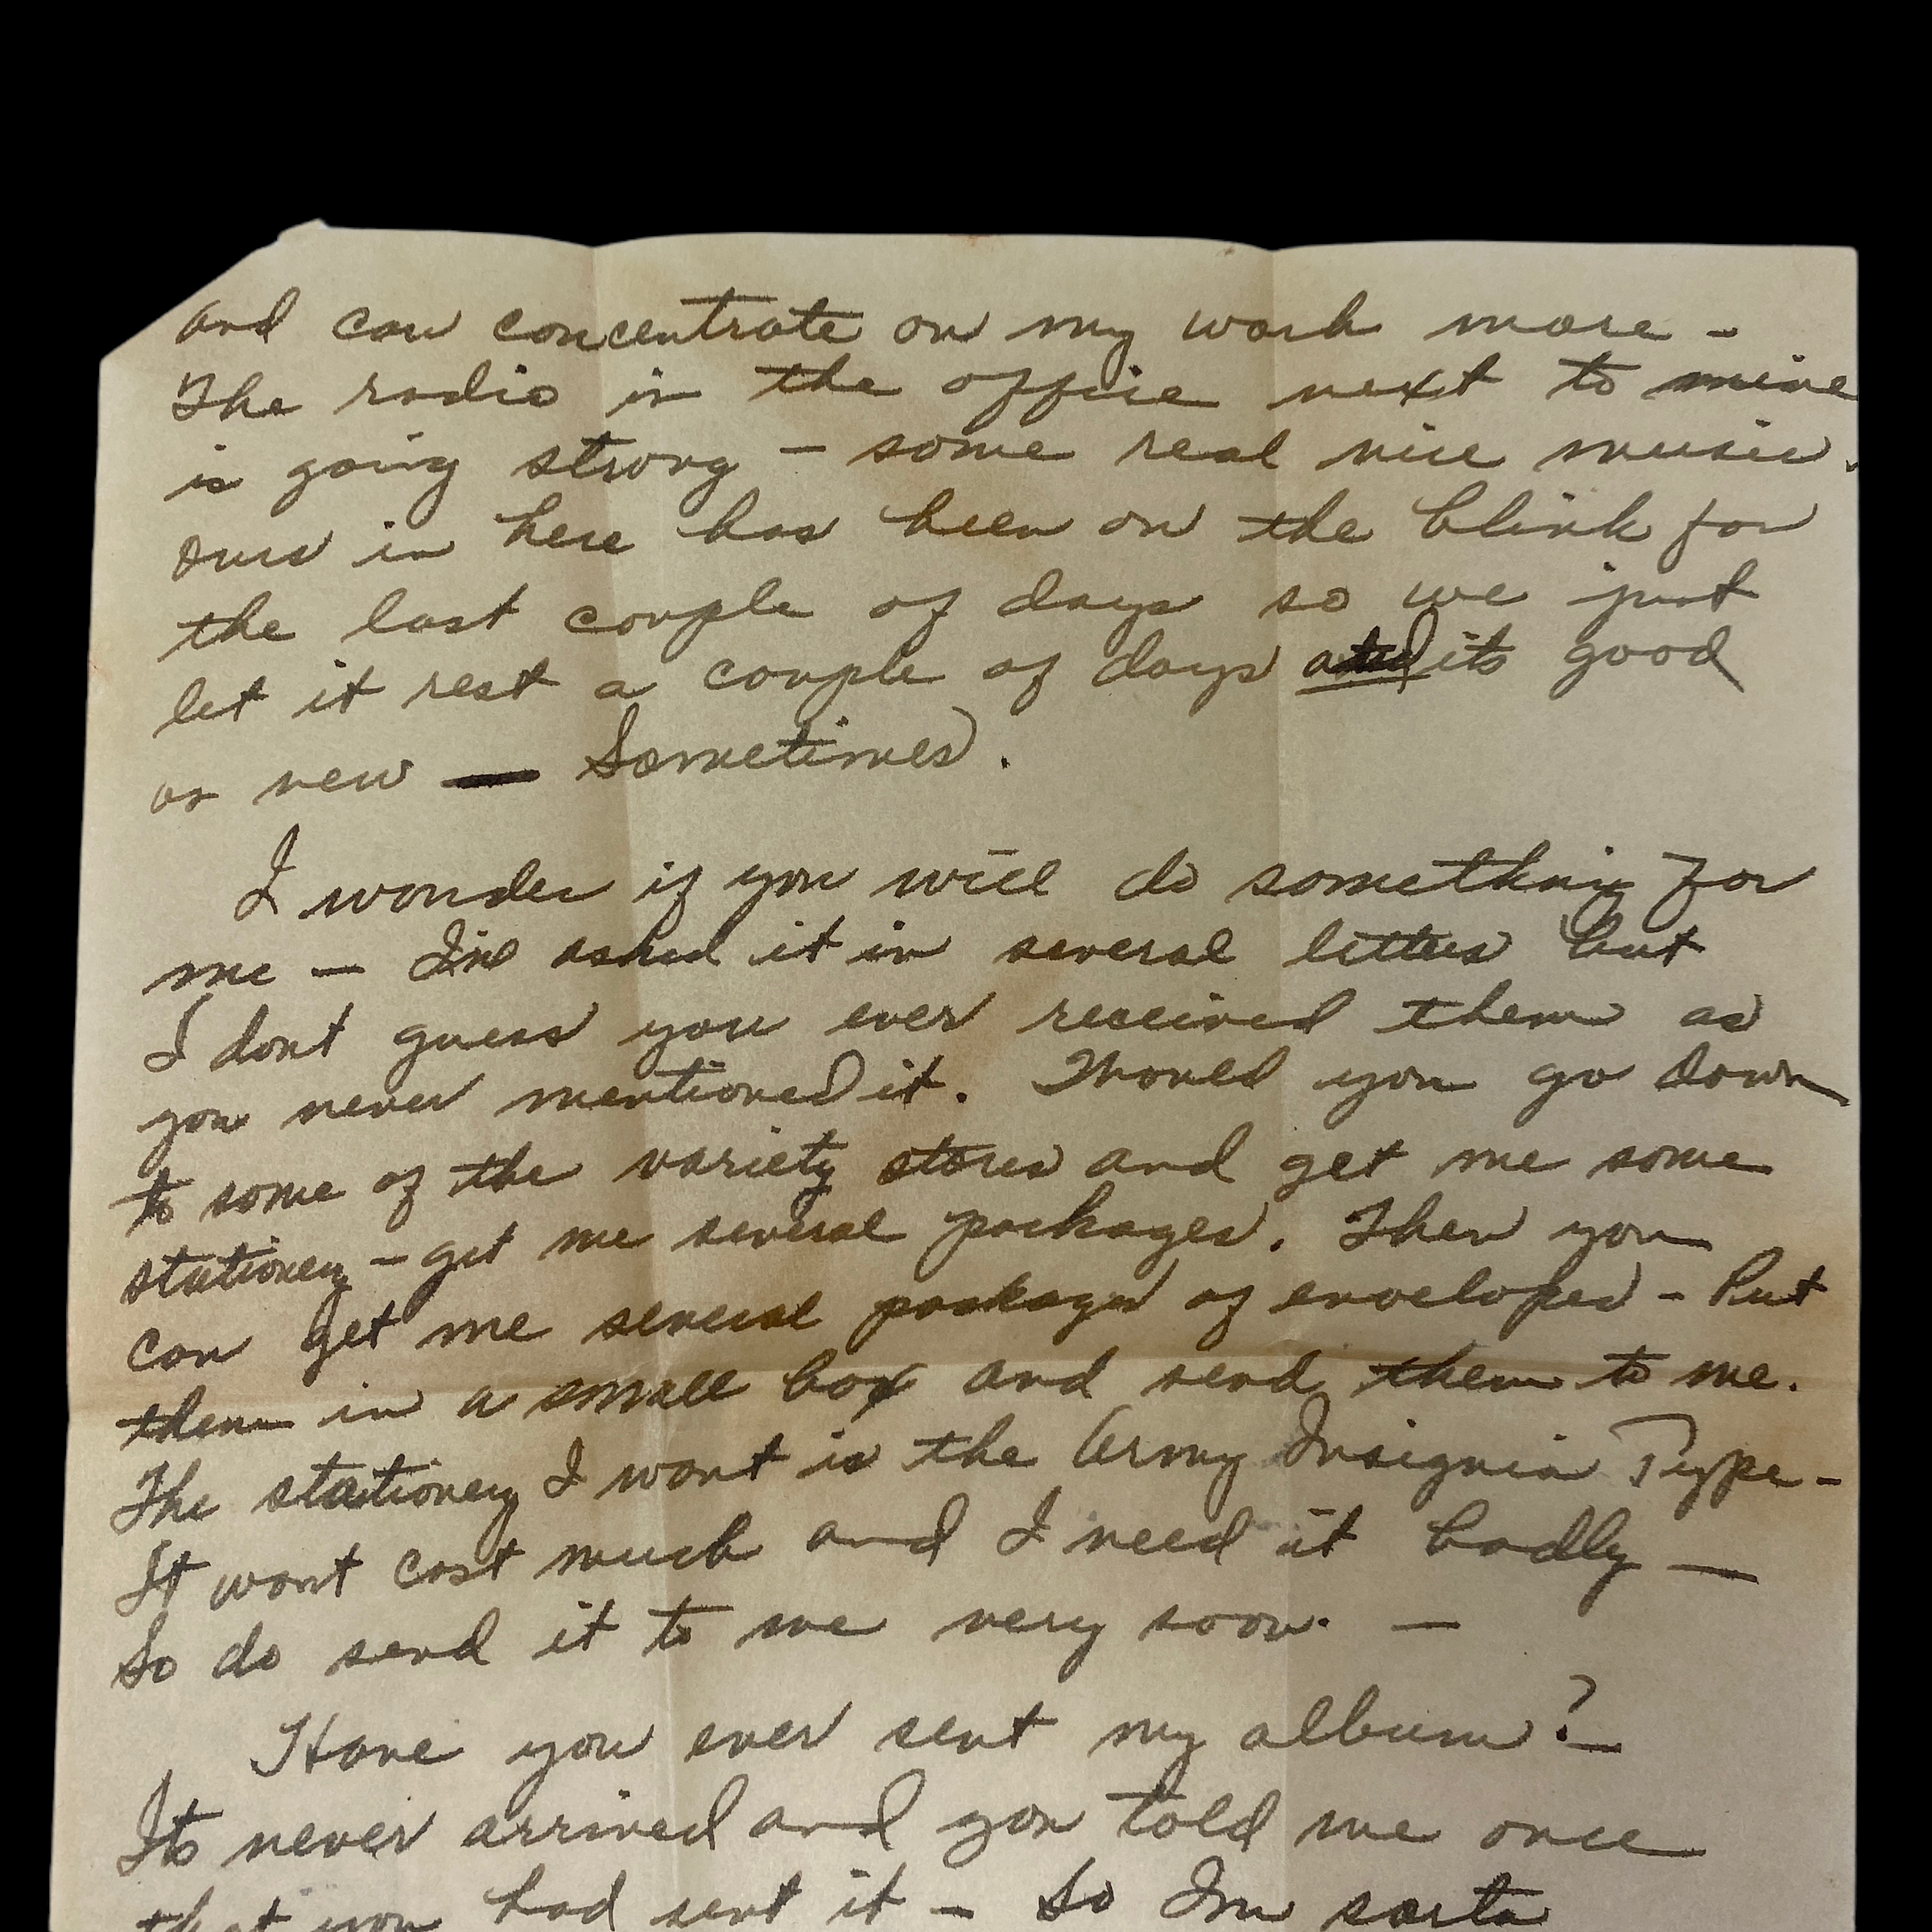 and can concentrate on my work more -
The radio in the office next to mine
is going strong - some real nice music.
Ours in here has been on the blink for
the last couple of days so we just
let it rest a couple of days and its good
as new — Sometimes.
I wonder if you will do something for
me - I've asked it in several letters but
I dont guess you ever received them as
you never mentioned it. Would you go down
to some of the variety stores and get me some
stationery - get me several packages. Then you
can get me several packages of envelopes - Put
them in a small box and send them to me.
The stationery I want is the Army Insignia Type -
It wont cost much and I need it badly —
So do send it to me very soon. —
Have you ever sent my album? —
Its never arrived and you told me once
that you had sent it - So Im sorta